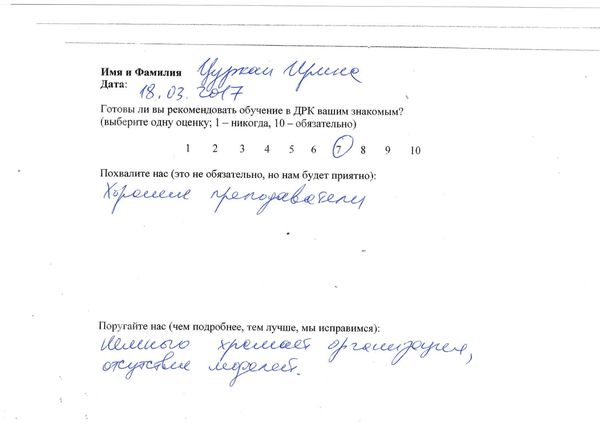 Имя и Фамилия Цуркан Ирина
Дата: 18.03.2017
Готовы ли вы рекомендовать обучение в ДРК вашим знакомым?
(выберите одну оценку; 1 – никогда, 10 – обязательно)
1 2 3 4 5 6 7 8 9 10
Похвалите нас (это не обязательно, но нам будет приятно):
Хорошие преподаватели
Поругайте нас (чем подробнее, тем лучше, мы исправимся):
Немного хромает организация,
отсутствие